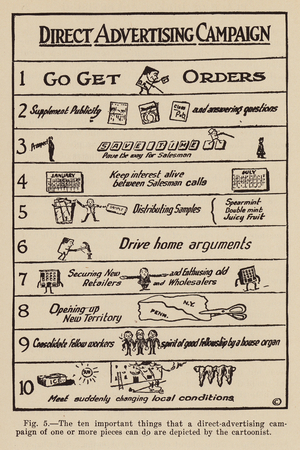 DIRECT ADVERTISING CAMPAIGN
1 GO GET ORDERS
2 Supplement Publicity and answering questions
3 SAVE TIME
Pave the way for Salesman
4 JANUARY Keep interest alive JULY
between Salesman calls
5 Distributing Samples { Spearmint
Double mint
Juicy Fruit
6 Drive home arguments
7 Securing New and Enthusing old
Retailers and Wholesalers
8 Opening up N.Y.
New Territory PENN.
9 Consolidate fellow workers spirit of good fellowship by a house organ
10 ICE
Meet suddenly changing local conditions
Fig. 5.—The ten important things that a direct-advertising cam-
paign of one or more pieces can do are depicted by the cartoonist.